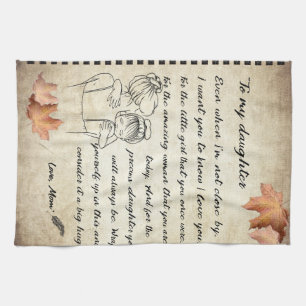 "To my daughter
Even when I'm not close by,
I want you to know I love you
for the little girl that you once were,
for the amazing woman that you are
today. And for the
precious daughter you
will always be. Wrap
yourself up in this and
consider it a big hug
Love, Mom.